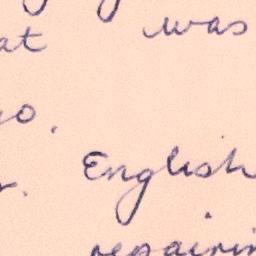 at was
o.
r. English
repairin